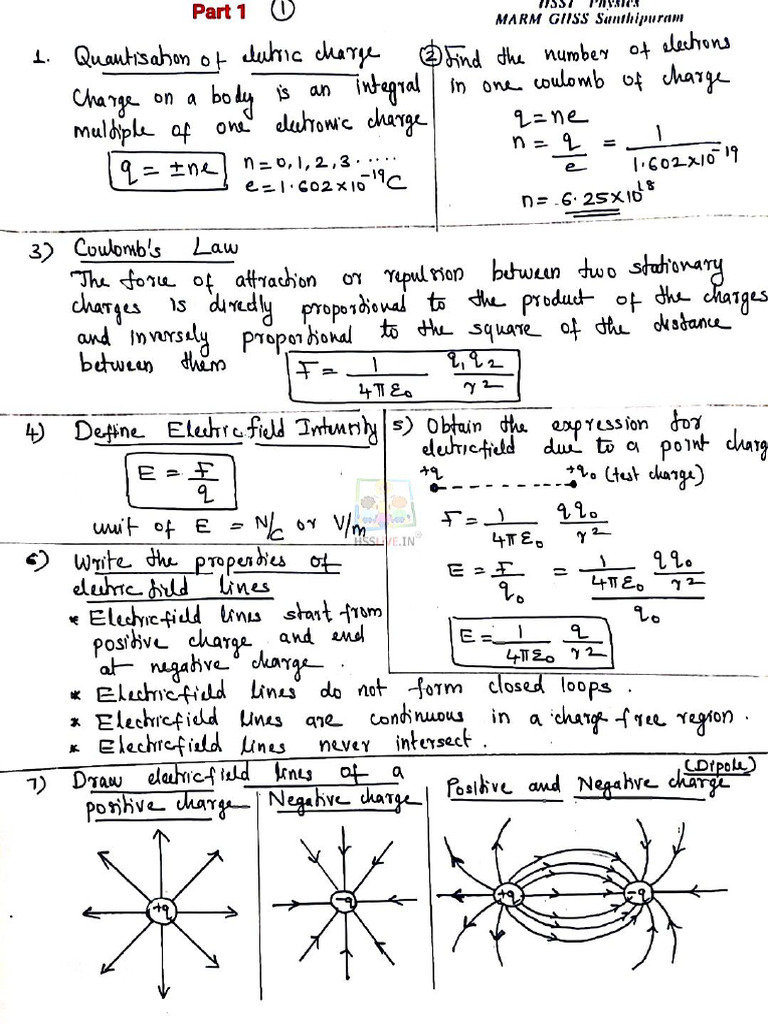 Part 1 ①
HSST Physics
MARM GHSS Santhipuram
1. Quantisation of eletric charge
Charge on a body is an integral
multiple of one electronic charge
q = ±ne n = 0, 1, 2, 3 .....
e = 1.602×10⁻¹⁹C
② Find the number of electrons
in one coulomb of charge
q = ne
n = q/e = 1/1.602×10⁻¹⁹
n = 6.25×10¹⁸
3) Coulomb's Law
The force of attraction or repulsion between two stationary
charges is directly proportional to the product of the charges
and inversely proportional to the square of the distance
between them F = 1/4πε₀ q₁q₂/r²
4) Define Electric field Intensity
E = F/q
unit of E = N/C or V/m
5) Obtain the expression for
electricfield due to a point charg
+q +q₀ (test charge)
F = 1/4πε₀ qq₀/r²
E = F/q₀ = 1/4πε₀ qq₀/r² / q₀
E = 1/4πε₀ q/r²
HSSLIVE.IN
6) Write the properties of
electric field lines
* Electricfield lines start from
positive charge and end
at negative charge.
* Electricfield lines do not form closed loops.
* Electricfield lines are continuous in a charge free region.
* Electricfield lines never intersect.
7) Draw electricfield lines of a
positive charge
Negative charge
Positive and Negative charge (Dipole)
+q
-q
+q -q